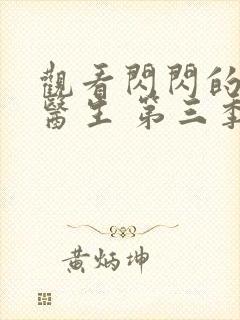 觀看閃閃的
醫生 第三季
黃炳坤